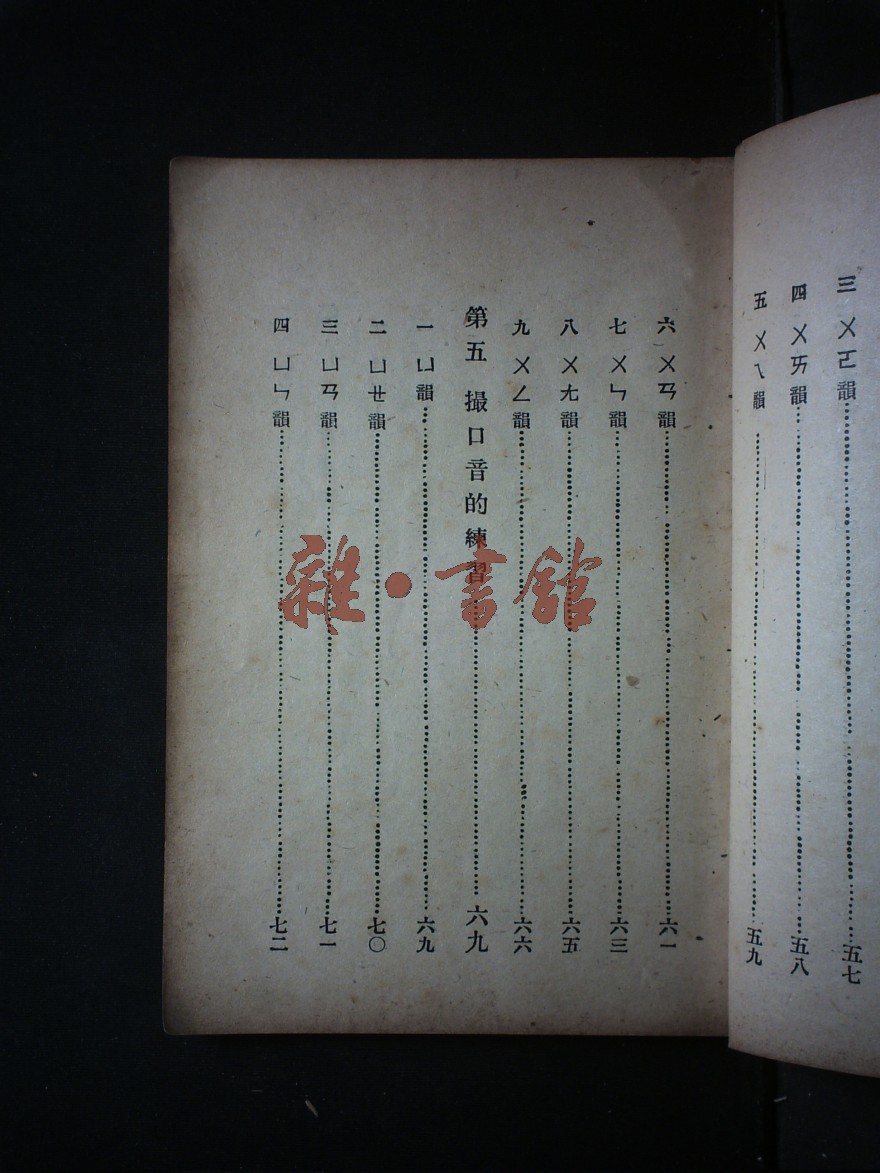 三 ㄨㄛ韻……五七
四 ㄨㄞ韻……五八
五 ㄨㄟ韻……五九
六 ㄨㄢ韻……六一
七 ㄨㄣ韻……六三
八 ㄨㄤ韻……六五
九 ㄨㄥ韻……六六
第五 撮口音的練習……六九
一 ㄩ韻……六九
二 ㄩㄝ韻……七〇
三 ㄩㄢ韻……七一
四 ㄩㄣ韻……七二
雜·書館